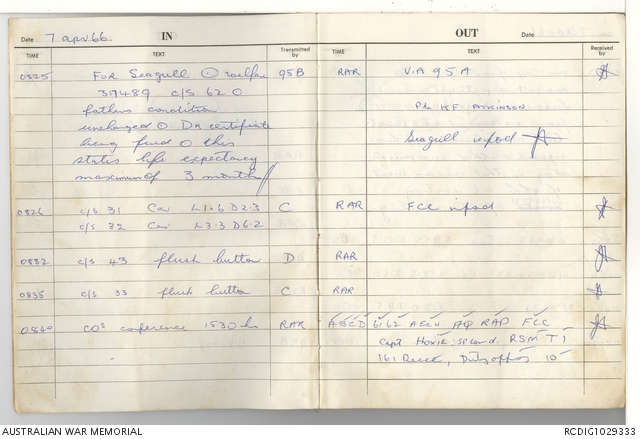 IN
Date 7 apr 66.
TIME TEXT Transmitted by
0825 For Seagull O welfare 95B
37489 c/s 62 O
fathers condition
unchanged O Dr certificate
being fwd O this
states life expectancy
maximum of 3 months
0826 c/s 31 Car L1.6 D2.3 C
c/s 32 Car L3.3 D6.2
0832 c/s 43 flush button D
0835 c/s 33 flush button C
0840 CO's conference 1530 hr RAR
OUT
Date
TEXT Received by
RAR VIA 95A
Pte KF ATKINSON
Seagull inford
RAR FCC infod
RAR
RAR
ABCD 6162 RAP FCC
Capt RSM T1
161 Recce, Duty offr 10
AUSTRALIAN WAR MEMORIAL
RCDIG1029333